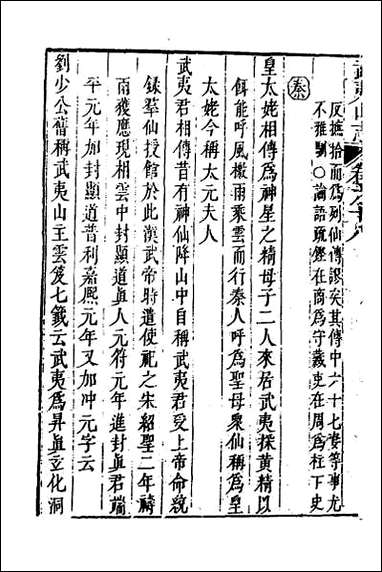 反摭拾而爲列仙傳謬矣其傳中六十七妻等事尤
不雅馴○論語疏鏗在商爲守藏吏在周爲柱下史
秦
皇太姥相傳爲神星之精母子二人來居武夷採黃精以
餌能呼風檄雨乘雲而行秦人呼爲聖母衆仙稱爲皇
太姥今稱太元夫人
武夷君相傳昔有神仙降山中自稱武夷君受上帝命統
錄羣仙授館於此漢武帝時遣使祀之宋紹聖二年禱
雨獲應現相雲中封顯道眞人元符元年進封眞君端
平元年加封顯道普利嘉熙元年又加冲元字云
劉少公舊稱武夷山主雲笈七籤云武夷爲昇眞立化洞